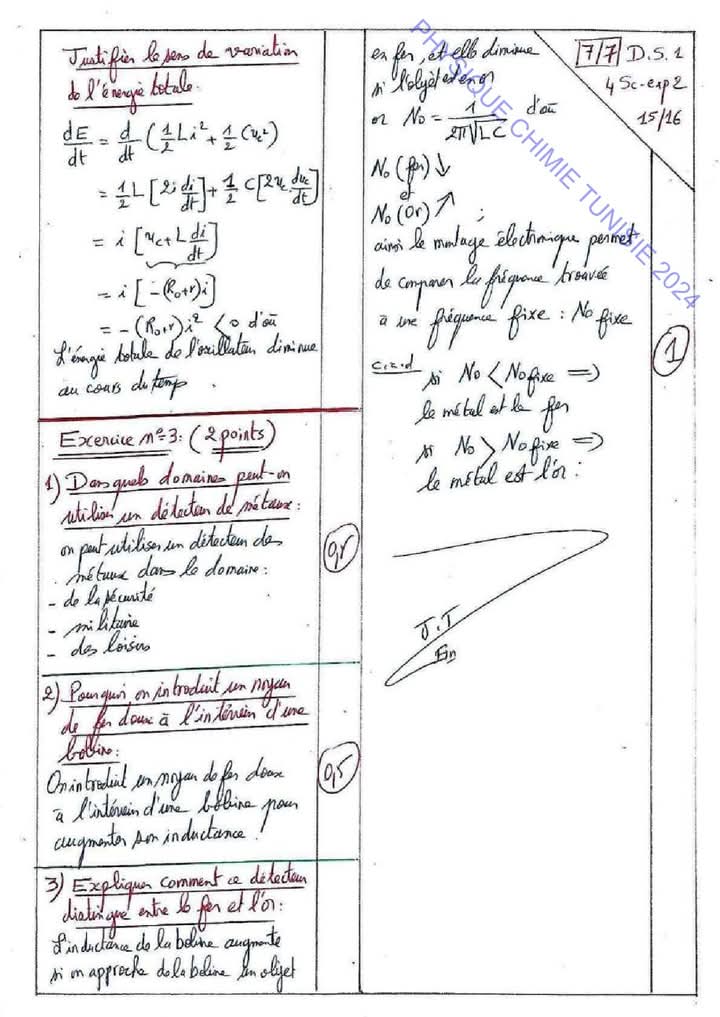 Justifier le sens de variation
de l'énergie totale.
dE/dt = d/dt (1/2 Li² + 1/2 C uc²)
= 1/2 L [2i di/dt] + 1/2 C [2uc duc/dt]
= i [uc + L di/dt]
= i [-(R0+r)i]
= -(R0+r)i² < 0 d'où
L'énergie totale de l'oscillateur diminue
au cours du temp.
Exercice n°3: (2 points)
1) Dans quels domaines peut-on
utiliser un détecteur de métaux:
on peut utiliser un détecteur des
métaux dans le domaine:
- de la sécurité
- militaire
- des loisirs
2) Pourquoi on introduit un noyau
de fer doux à l'intérieur d'une
bobine:
On introduit un noyau de fer doux
à l'intérieur d'une bobine pour
augmenter son inductance.
0,5
3) Expliquer comment ce détecteur
distingue entre le fer et l'or:
L'inductance de la bobine augmente
si on approche de la bobine un objet
en fer, et elle diminue
si l'objet est en or
or N0 = 1/2π√LC d'où
N0 (fer) ↓
et
N0 (Or) ↗ ;
ainsi le montage électronique permet
de comparer la fréquence trouvée
à une fréquence fixe : N0 fixe
c.à.d si N0 < N0 fixe ⇒
le métal est le fer
si N0 > N0 fixe ⇒
le métal est l'or.
1
J.T
Fin
7/7 D.S.1
4 Sc-exp 2
15/16
PHYSIQUE CHIMIE TUNISIE 2024